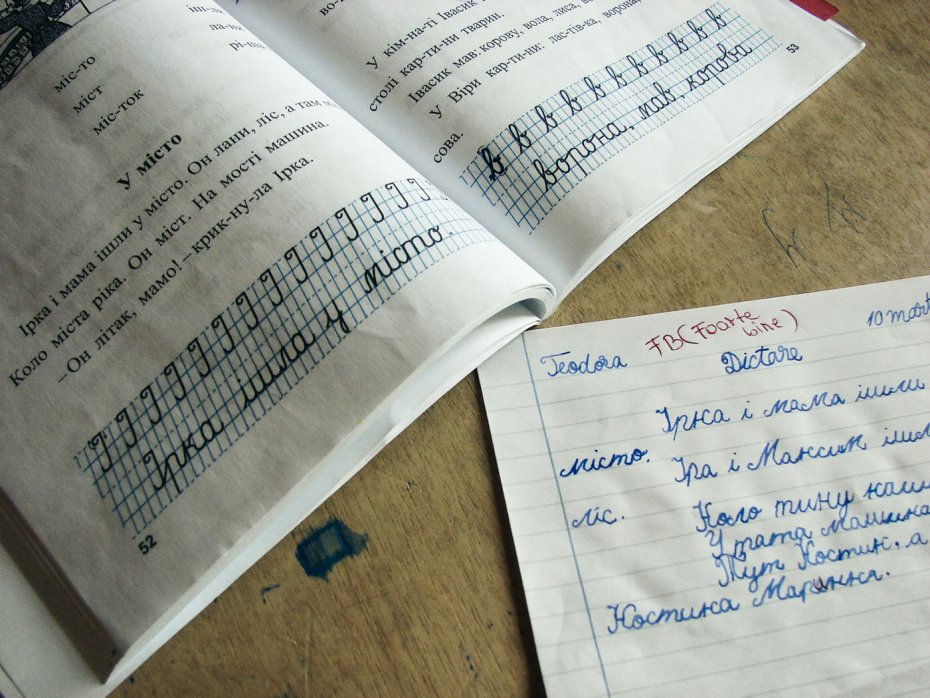 міс-то
міст
міс-ток
ла-ни
У місто
Ірка і мама ішли у місто. Он лани, ліс, а там
Коло міста ріка. Он міст. На мості машина.
–Он літак, мамо! – крик-ну-ла Ірка.
І І І І І І І І І І І
Ірка ішла у місто.
52
У кім-на-ті Івасик
столі кар-ти-ни тварин.
Івасик мав: корову, вола, лиса,
У Віри кар-ти-ни: лас-тів-ка, ворона,
сова.
в в в в в в в в в в
ворона, мав, корова
53
FB (Foarte bine)
10 mart
Teodora
Dictare
Ірка і мама ішли
місто.
Іра і Максим ішли
ліс.
Коло тину
У тата машина
Тут Костик, а
Костика Маринка.